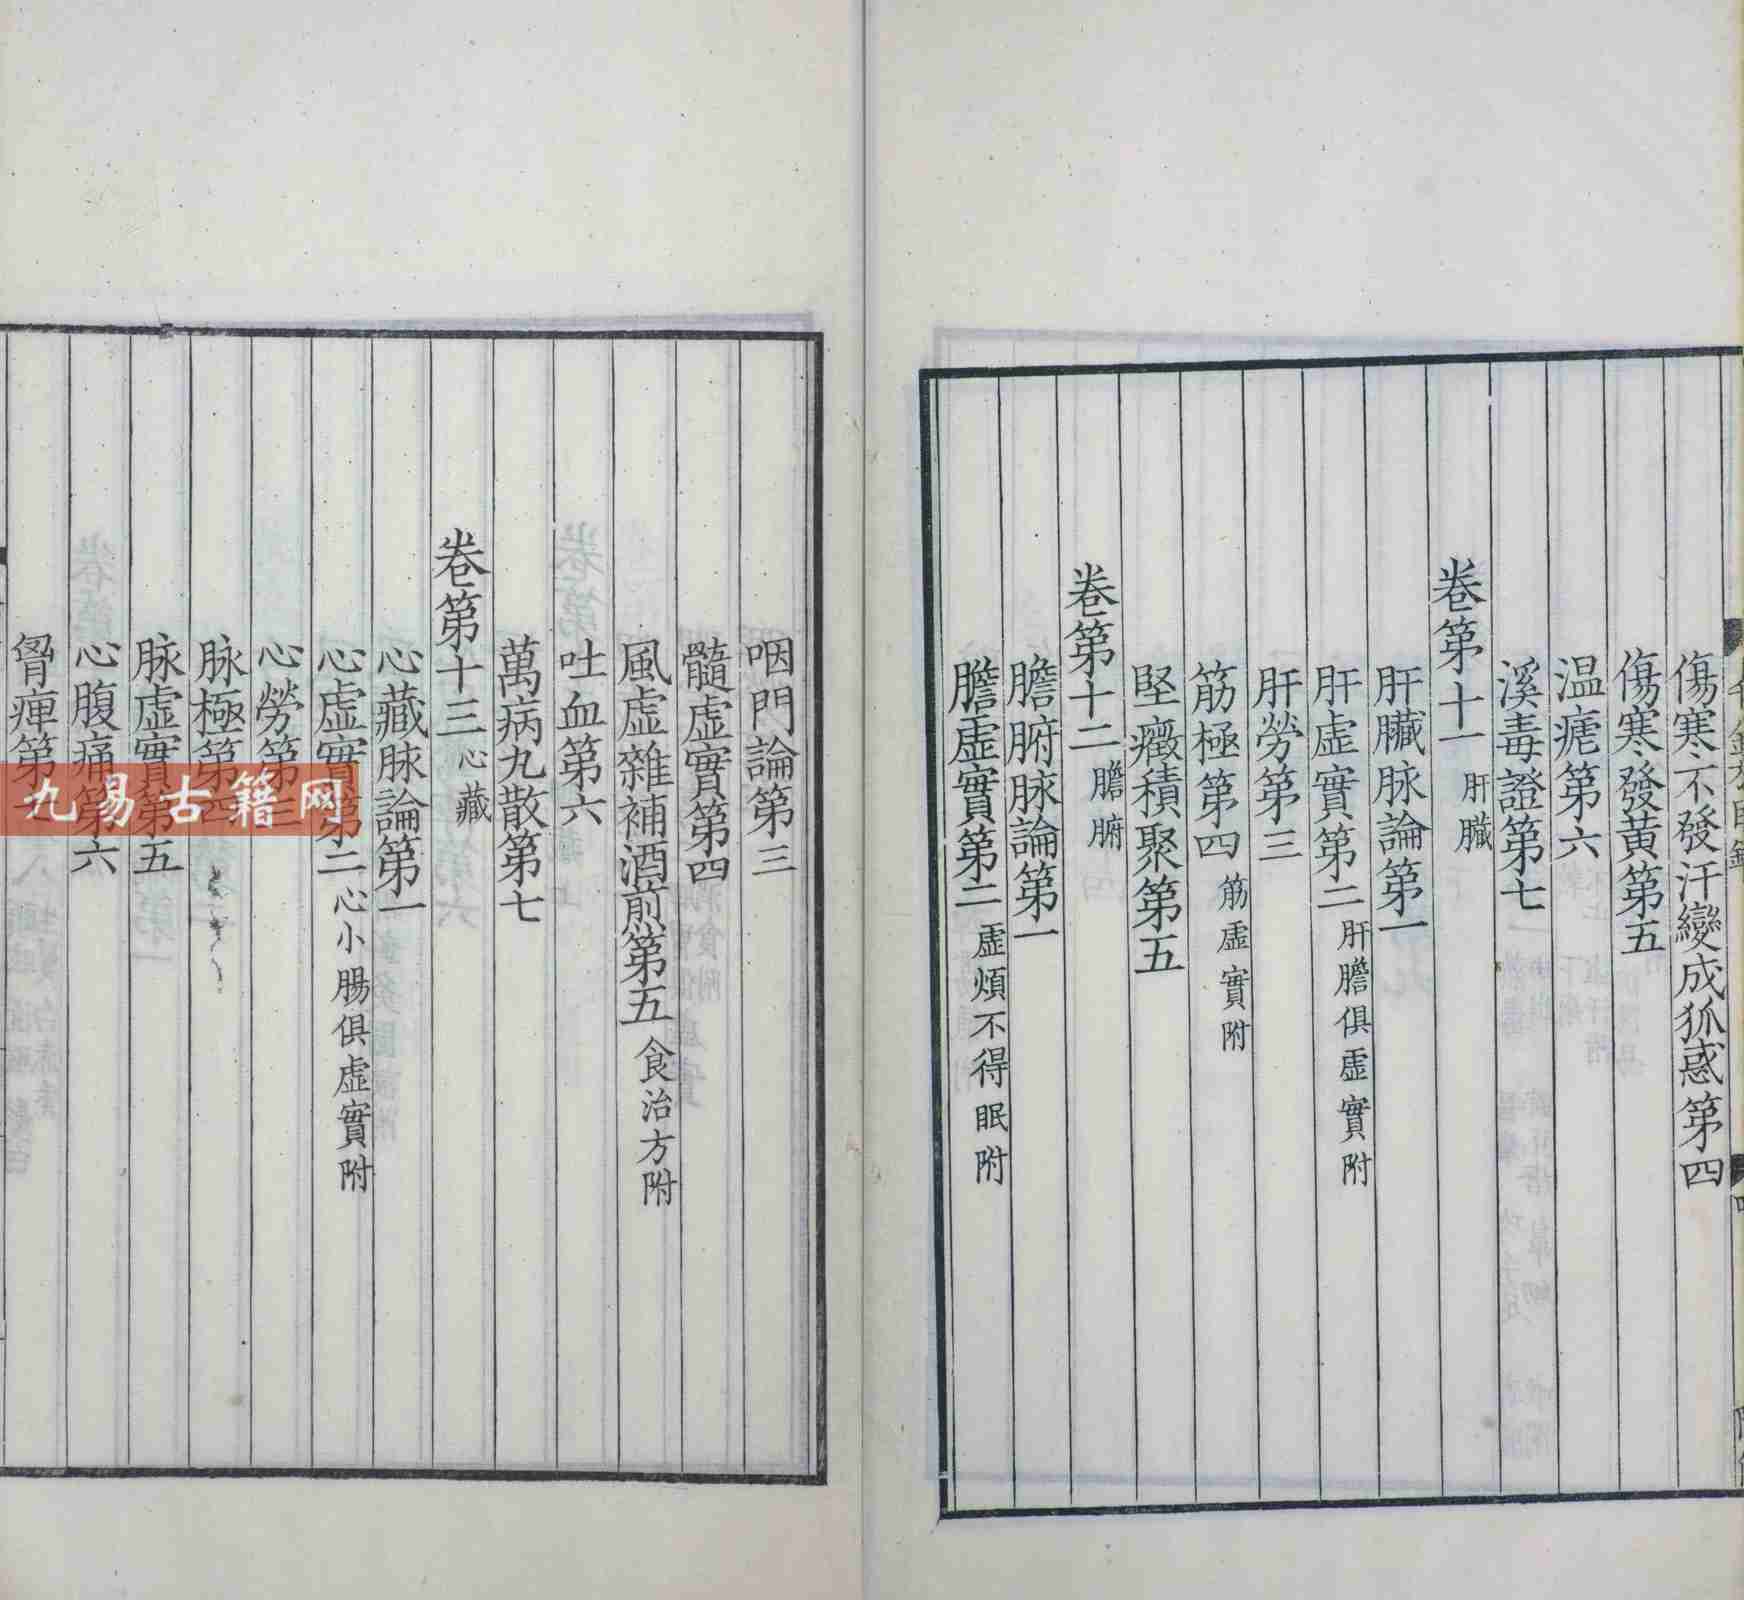 傷寒不發汗變成狐惑第四
傷寒發黄第五
温瘧第六
溪毒證第七
卷第十一 肝臟
肝臟脉論第一
肝虛實第二 肝膽俱虛實附
肝勞第三
筋極第四 筋虛實附
堅癥積聚第五
卷第十二 膽腑
膽腑脉論第一
膽虛實第二 虛煩不得眠附
咽門論第三
髓虛實第四
風虛雜補酒煎第五 食治方附
吐血第六
萬病丸散第七
卷第十三 心藏
心藏脉論第一
心虛實第二 心小腸俱虛實附
心勞第三
脉極第四
脉虛實第五
心腹痛第六
胷痺第
九易古籍网